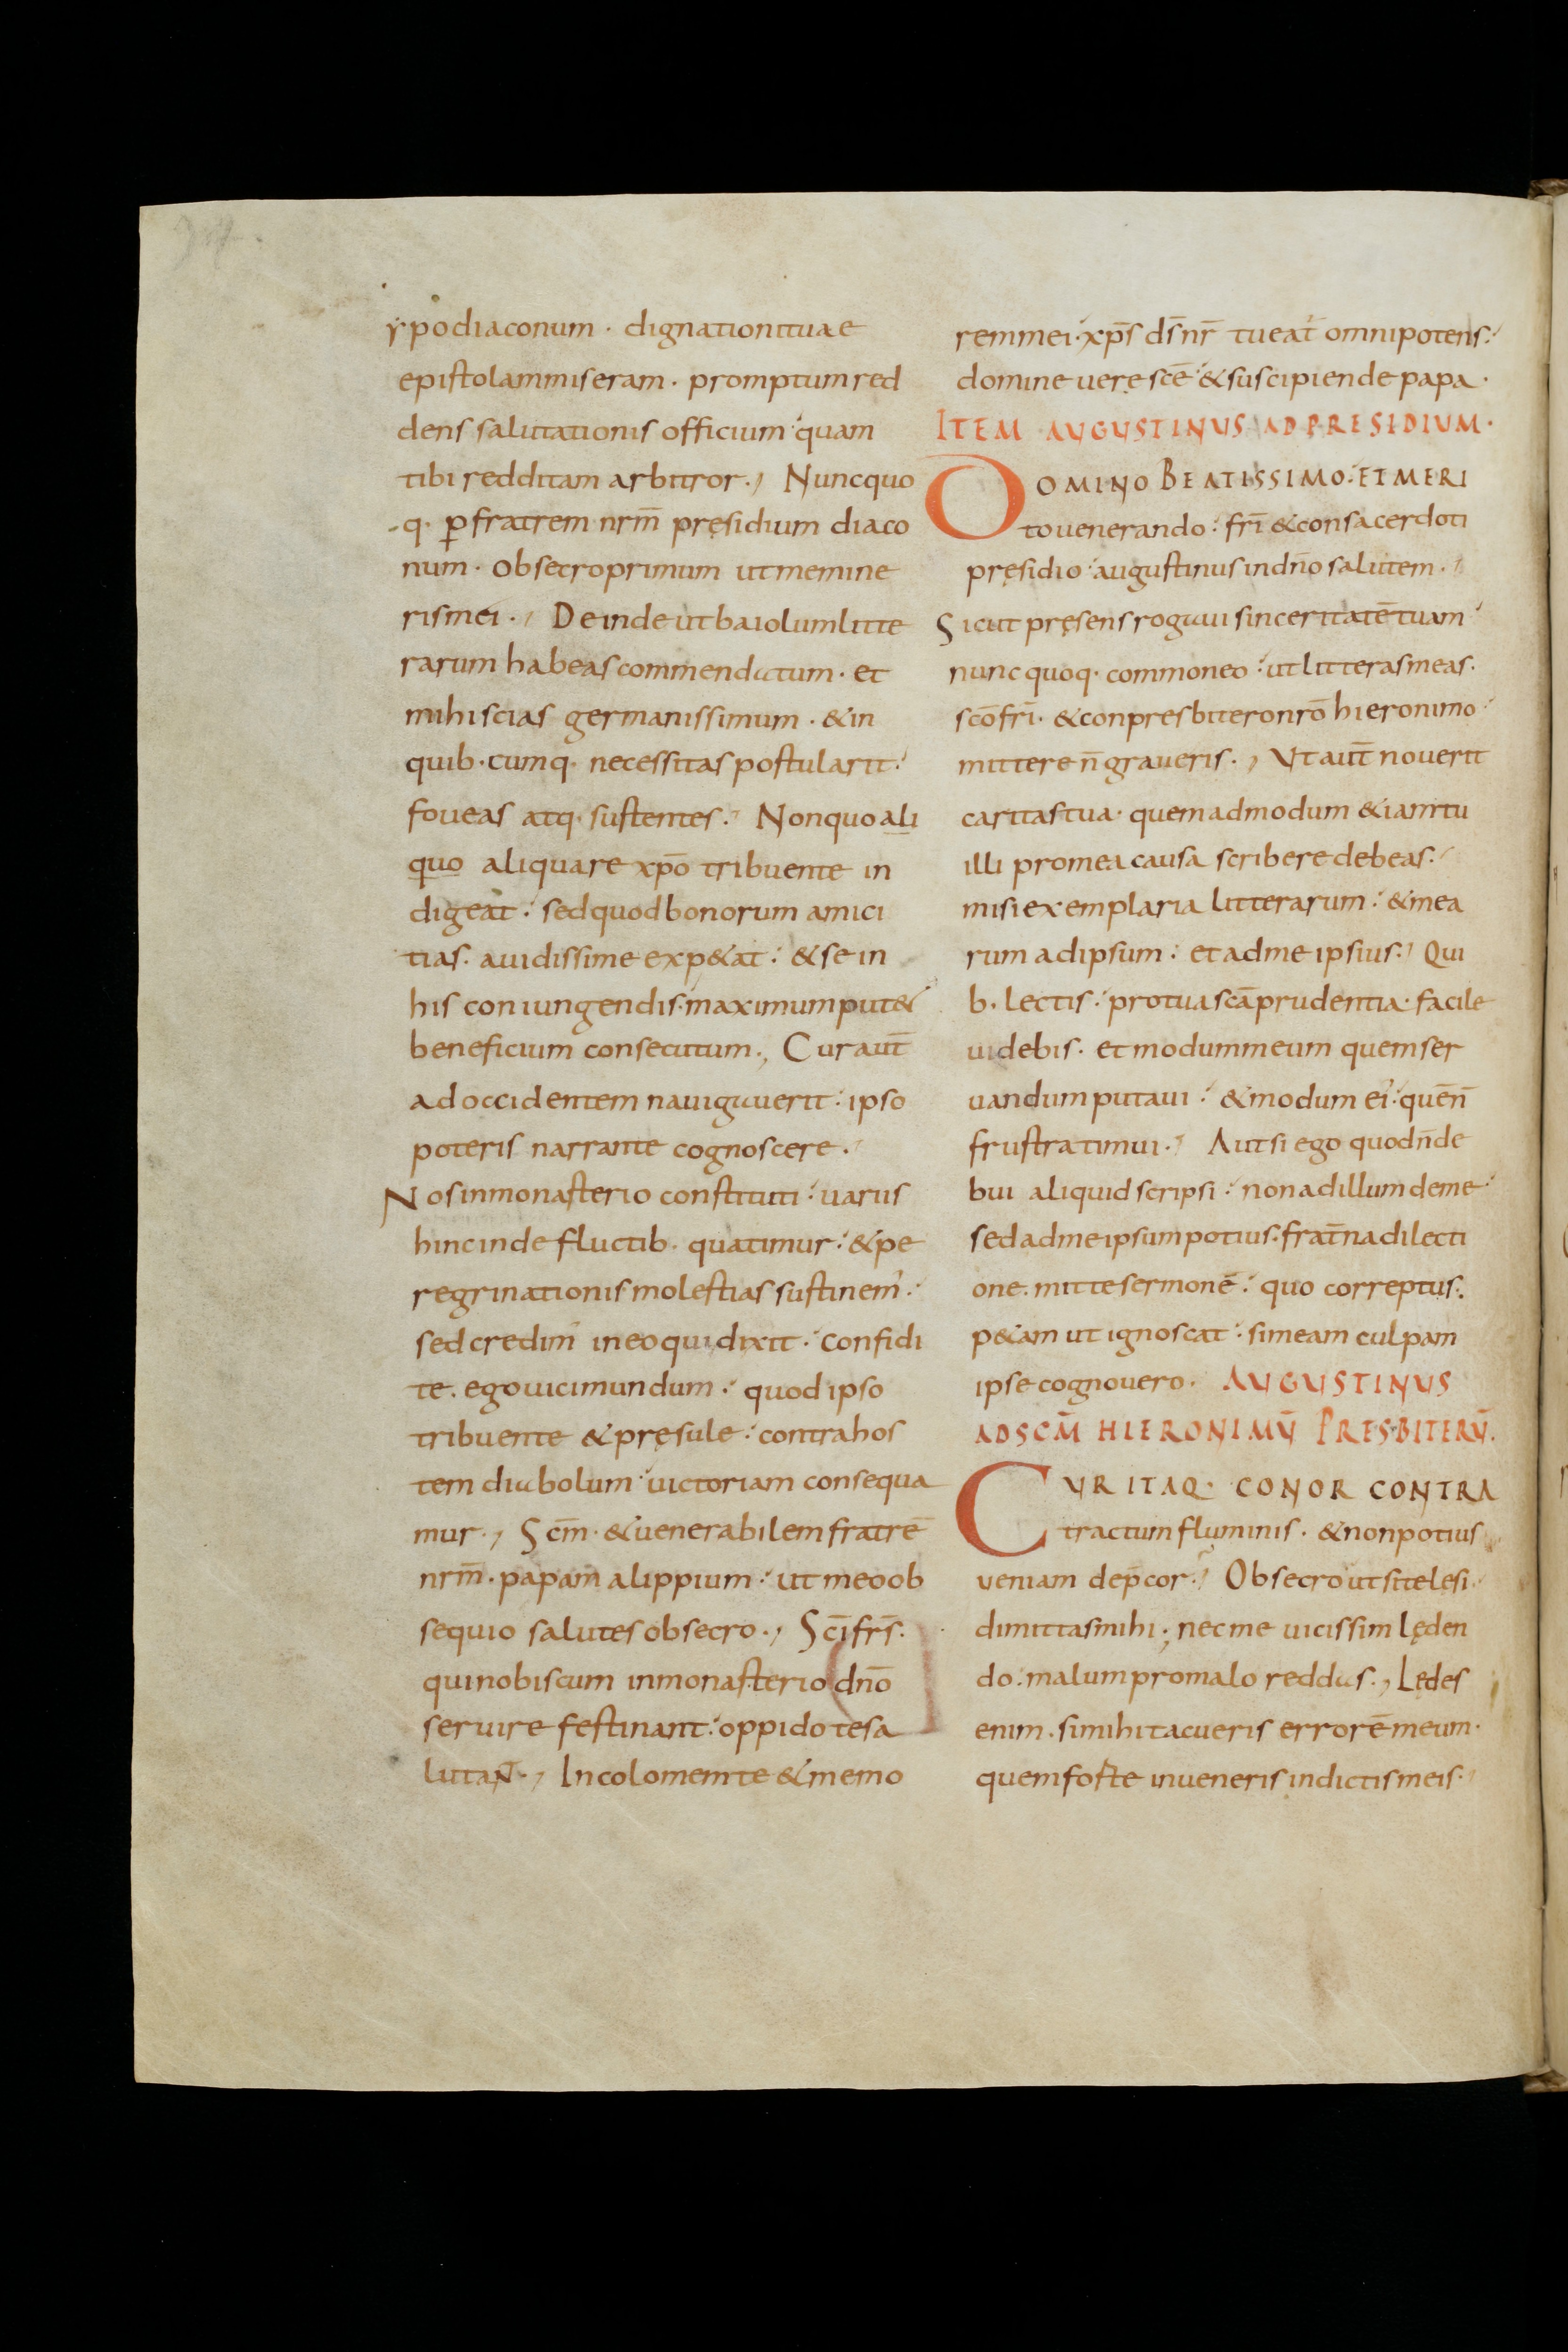 ypodiaconum · dignationi tuae
epistolam miseram · promptum red
dens salutationis officium quam
tibi redditam arbitror ·, Nunc quo
q· ꝑ fratrem nr̄m pręsidium diaco
num · obsecro primum ut memine
ris mei ·, Deinde ut baiolum litte
rarum habeas commendatum · et
mihi scias germanissimum · & in
quib· cumq· necessitas postularit:
foueas atq· sustentes: Non quo ali
quo aliqua re xp̄o tribuente in
digeat: sed quod bonorum amici
tias· auidissime exp&at: & se in
his coniungendis· maximum put&
beneficium consecutum ·, Cur aut̄
ad occidentem nauigauerit: ipso
poteris narrante cognoscere ·
Nos in monasterio constituti: uariis
hinc inde fluctib· quatimur: & pe
regrinationis molestias sustinem':
sed credim' in eo qui dixit: confidi
te· ego uici mundum: quod ipso
tribuente & pręsule: contra hos
tem diabolum uictoriam consequa
mur ·, Sc̄m· & uenerabilem fratrē
nr̄m· papam alippium: ut meo ob
sequio salutes obsecro ·, Sc̄i fr̄s·
qui nobiscum in monasterio dn̄o
seruire festinant: oppido te sa
lutaN̄ ·, Incolomem te & memo
rem mei· xp̄s ds̄ nr̄ tueat' omnipotens:
domine uere sc̄e & suscipiende papa ·
ITEM AUGUSTINUS AD PRESIDIUM·
DOMINO BEATISSIMO: ET MERI
to uenerando: fr̄i & consacerdoti
pręsidio: augustinus in dn̄o salutem ·
Sicut pręsens rogaui sinceritatē tuam
nunc quoq· commoneo: ut litteras meas·
sc̄o fr̄i· & conpresbitero nr̄o hieronimo
mittere n̄ graueris ·, Ut aut̄ nouerit
caritas tua· quemadmodum & iam tu
illi pro mea causa scribere debeas:
misi exemplaria litterarum: & mea
rum ad ipsum: et ad me ipsius: Qui
b· lectis: pro tua sc̄a prudentia· facile
uidebis· et modum meum quem ser
uandum putaui: & modum ei': quē n̄
frustra timui ·, Aut si ego quod n̄ de
bui aliquid scripsi: non ad illum de me
sed ad me ipsum potius· frat̄na dilecti
one· mitte sermonē: quo correptus:
p&am ut ignoscat: si meam culpam
ipse cognouero · AUGUSTINUS
AD SCM̄ HIERONIMŪ PRESBITERŪ.
CUR ITAQ· CONOR CONTRA
tractum fluminis· & non potius
ueniam dep̄cor: Obsecro ut si te lęsi
dimittas mihi· nec me uicissim lęden
do: malum pro malo reddas ·, Lędes
enim· si mihi tacueris errorē meum·
quem forte inueneris in dictis meis·